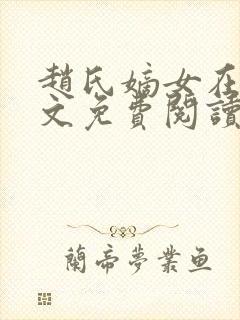 趙氏嫡女在
文免費閱讀
蘭帝夢業魚